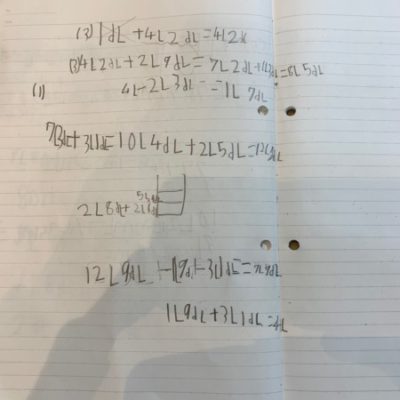 (3) 1dL+4L2dL=4L2dL
(3)4L2dL+2L9dL=7L2dL+1L3dL=8L5dL
(1) 4L-2L3dL=1L7dL
7L3dL+3L1dL=10L4dL+2L5dL=12L9dL
5L
2L8dL+2L
12L9dL-1L9dL-3L1dL=7L9dL
1L9dL+3L1dL=4L